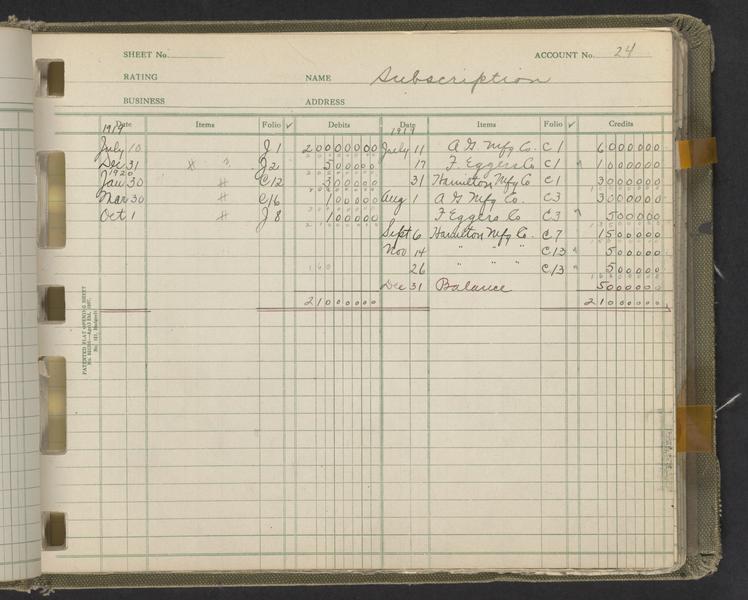 SHEET No. ACCOUNT No. 24
RATING NAME Subscription
BUSINESS ADDRESS
Date Items Folio ✓ Debits Date Items Folio ✓ Credits
1919 1919
July 10 J 1 20000000 July 11 A G Mfg Co. C 1 6000000
Dec 31 J 2 500000 17 F. Eggers Co C 1 1000000
1920
Jan 30 C 12 300000 31 Hamilton Mfg Co C 1 3000000
Mar 30 C 16 100000 Aug 1 A G Mfg Co. C 3 3000000
Oct 1 J 8 100000 F Eggers Co C 3 500000
Sept 6 Hamilton Mfg Co. C 7 1500000
Nov 14 " " " C 13 500000
160 26 " " " C 13 500000
Dec 31 Balance 5000000
21000000 21000000
PATENTED FLAT OPENING SHEET